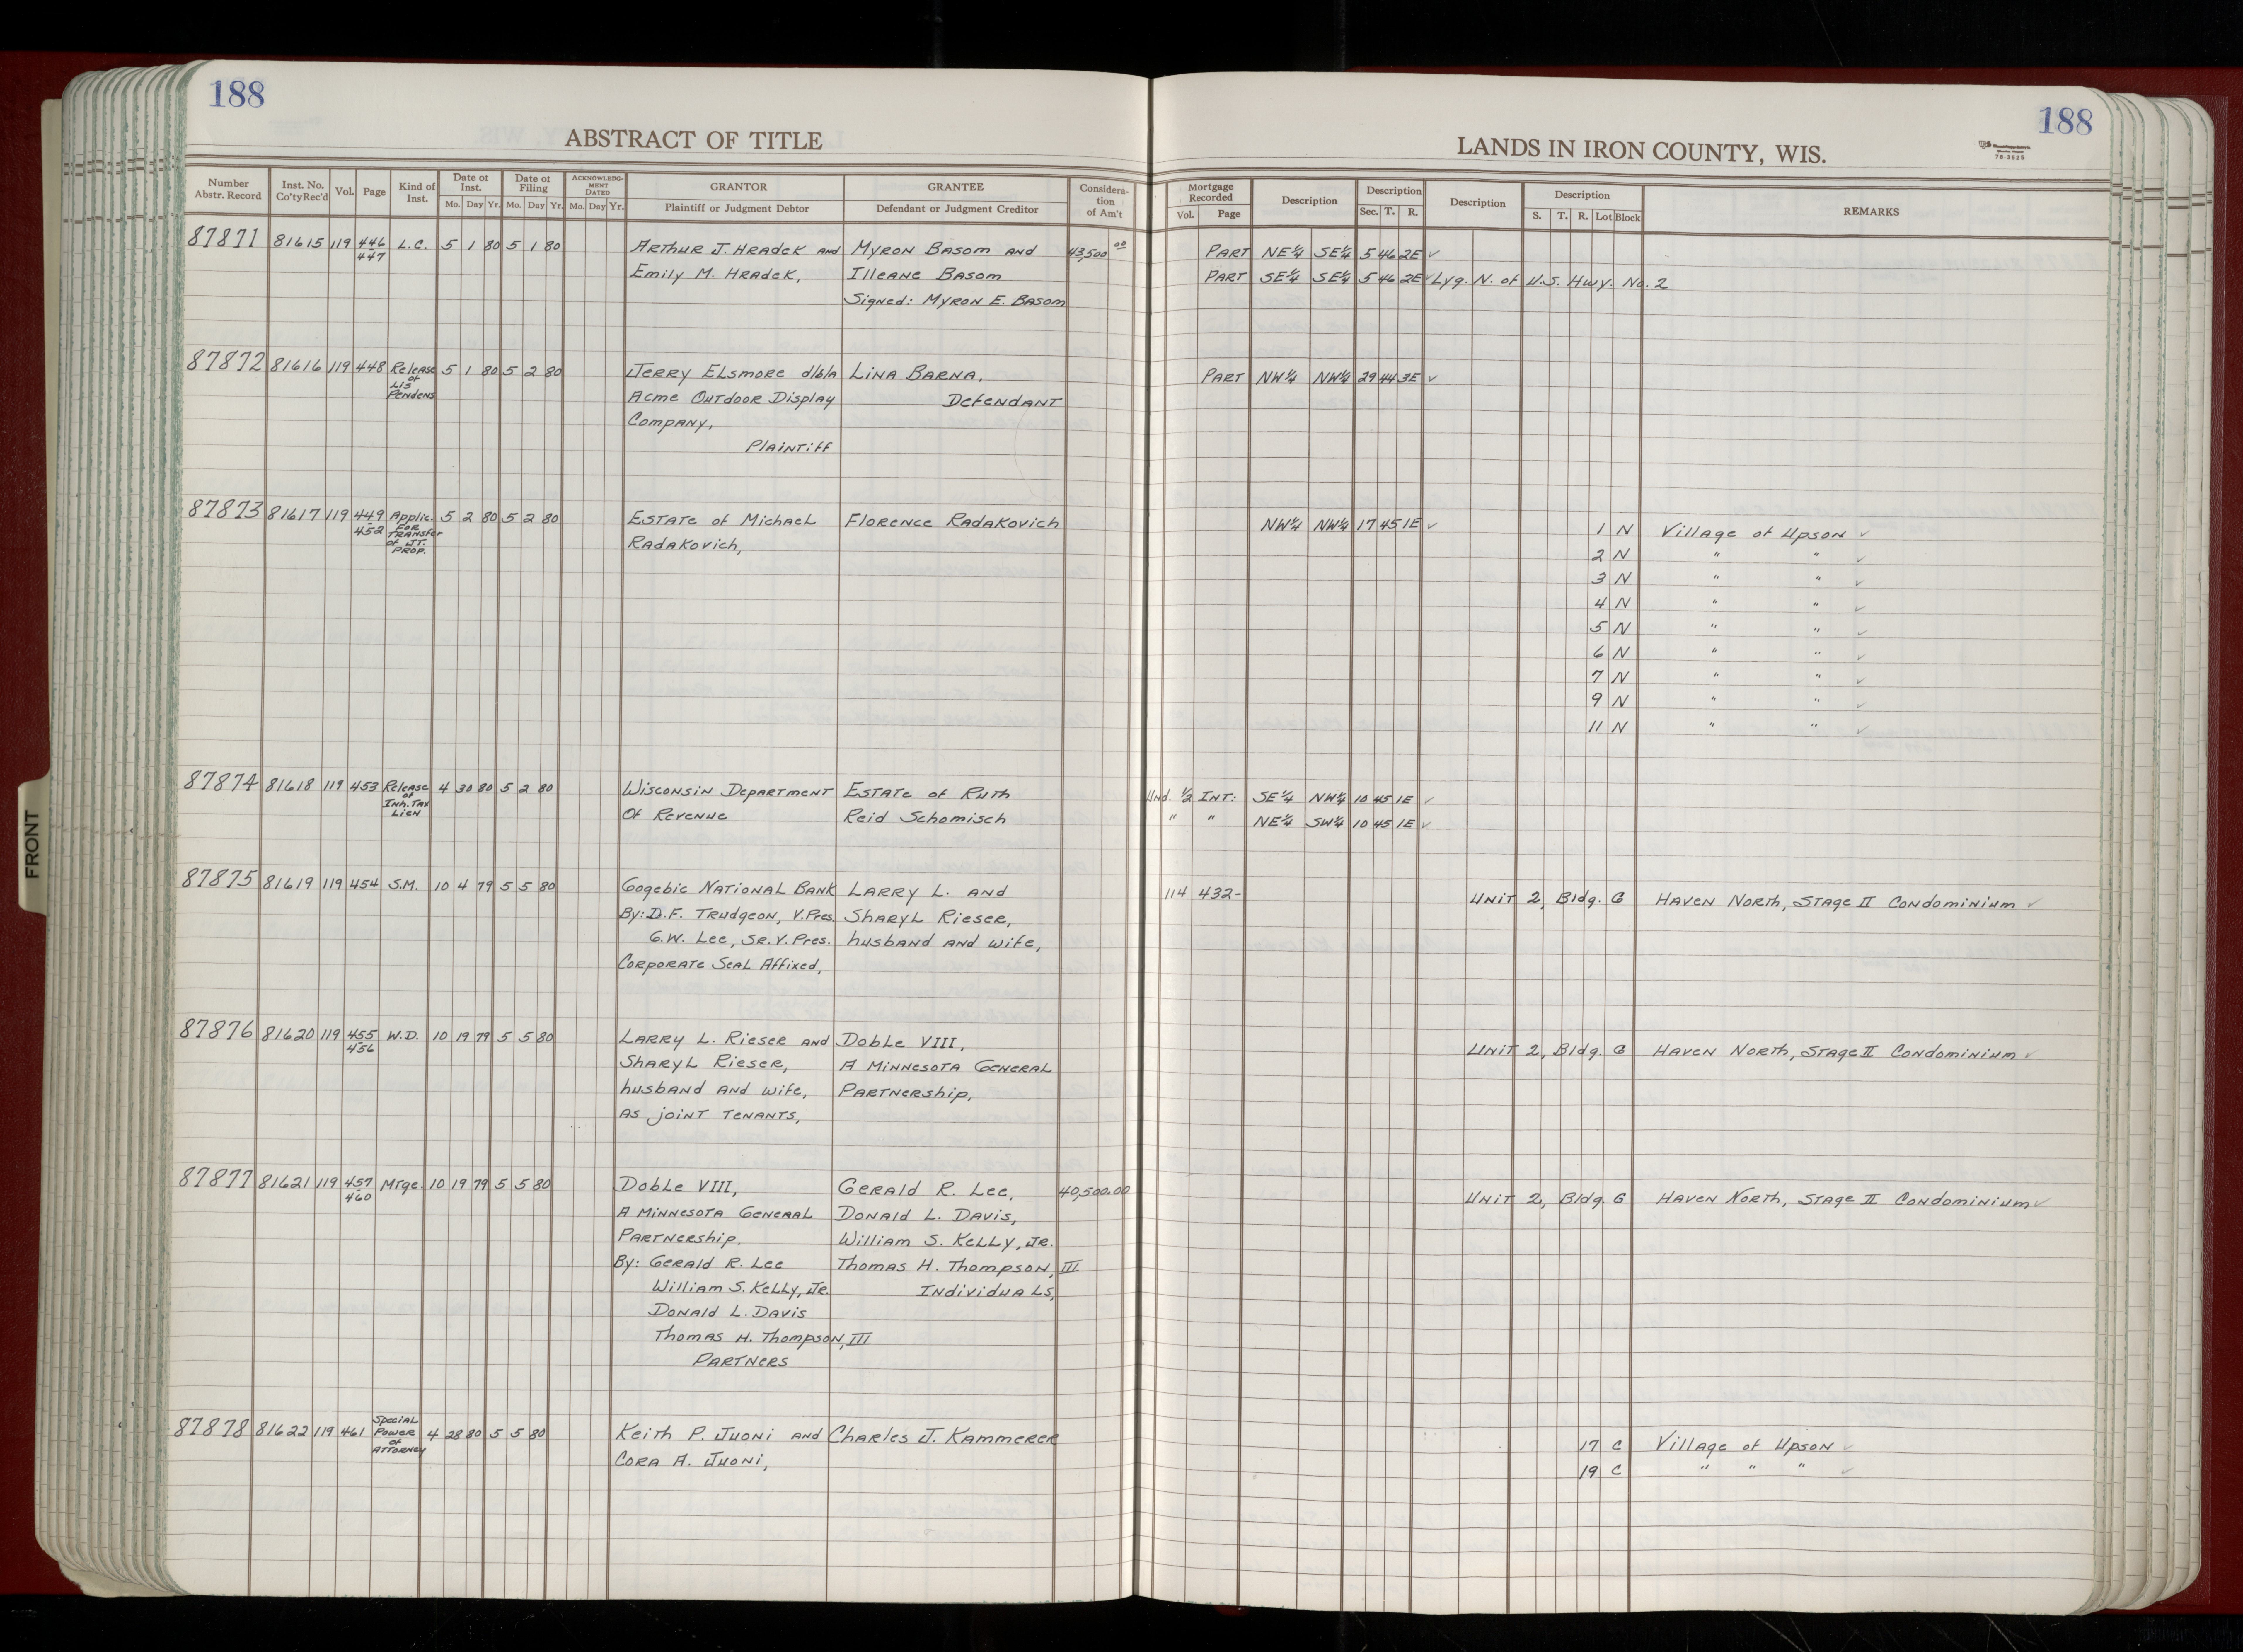 188
188
ABSTRACT OF TITLE
LANDS IN IRON COUNTY, WIS.
79-3525
Number Abstr. Record | Inst. No. Co'tyRec'd | Vol. | Page | Kind of Inst. | Date of Inst. Mo. Day Yr. | Date of Filing Mo. Day Yr. | ACKNOWLEDGMENT DATED Mo. Day Yr. | GRANTOR Plaintiff or Judgment Debtor | GRANTEE Defendant or Judgment Creditor | Consideration of Am't | Mortgage Recorded Vol. Page | Description | Description Sec. T. R. | Description | Description S. T. R. Lot Block | REMARKS
87871 81615 119 446 L.C. 5 1 80 5 1 80 Arthur J. Hradek and Myron Basom and 43,500 00 Part NE¼ SE¼ 5 46 2E ✓
447 Emily M. Hradek, Illeane Basom Part SE¼ SE¼ 5 46 2E ✓ Lyg. N. of U.S. Hwy. No. 2
Signed: Myron E. Basom
87872 81616 119 448 Release 5 1 80 5 2 80 Jerry Elsmore d/b/a Lina Barna, Part NW¼ NW¼ 29 44 3E ✓
of
Lis
Pendens Acme Outdoor Display Defendant
Company,
Plaintiff
87873 81617 119 449 Applic. 5 2 80 5 2 80 Estate of Michael Florence Radakovich NW¼ NW¼ 17 45 1E ✓ 1 N Village of Upson ✓
452 For
Transfer
of JT.
Prop. Radakovich, 2 N " " ✓
3 N " " ✓
4 N " " ✓
5 N " " ✓
6 N " " ✓
7 N " " ✓
9 N " " ✓
11 N " " ✓
87874 81618 119 453 Release 4 30 80 5 2 80 Wisconsin Department Estate of Ruth Und. ½ Int: SE¼ NW¼ 10 45 1E ✓
of
Inh. Tax
Lien Of Revenue Reid Schomisch " " NE¼ SW¼ 10 45 1E ✓
87875 81619 119 454 S.M. 10 4 79 5 5 80 Gogebic National Bank Larry L. and 114 432- Unit 2, Bldg. G Haven North, Stage II Condominium ✓
By: D.F. Trudgeon, V.Pres. Sharyl Rieser,
G.W. Lee, Sr. V. Pres. husband and wife,
Corporate Seal Affixed,
87876 81620 119 455 W.D. 10 19 79 5 5 80 Larry L. Rieser and Doble VIII, Unit 2, Bldg. G Haven North, Stage II Condominium ✓
456 Sharyl Rieser, A Minnesota General
husband and wife, Partnership,
as joint tenants,
87877 81621 119 457 Mtge. 10 19 79 5 5 80 Doble VIII, Gerald R. Lee, 40,500.00 Unit 2, Bldg. G Haven North, Stage II Condominium ✓
460 A Minnesota General Donald L. Davis,
Partnership. William S. Kelly, Jr.
By: Gerald R. Lee Thomas H. Thompson, III
William S. Kelly, Jr. Individuals,
Donald L. Davis
Thomas H. Thompson, III
Partners
87878 81622 119 461 Special
Power
of
Attorney 4 28 80 5 5 80 Keith P. Juoni and Charles J. Kammerer 17 C Village of Upson ✓
Cora A. Juoni, 19 C " " " ✓
FRONT